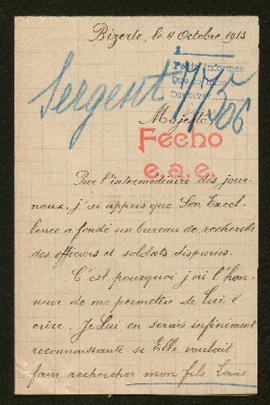 Bizerte, le 4 Octobre 1915
1
Sergent
Majesté
Fecho
e.a.e.
Par l'intermédiaire des jour-
naux, j'ai appris que Son Excel-
lence a fondé un bureau de recherche
des officiers et soldats disparus.
C'est pourquoi j'ai l'hon-
neur de me permettre de Lui é-
crire. Je Lui en serais infiniment
reconnaissante si Elle voulait
faire rechercher mon fils Louis